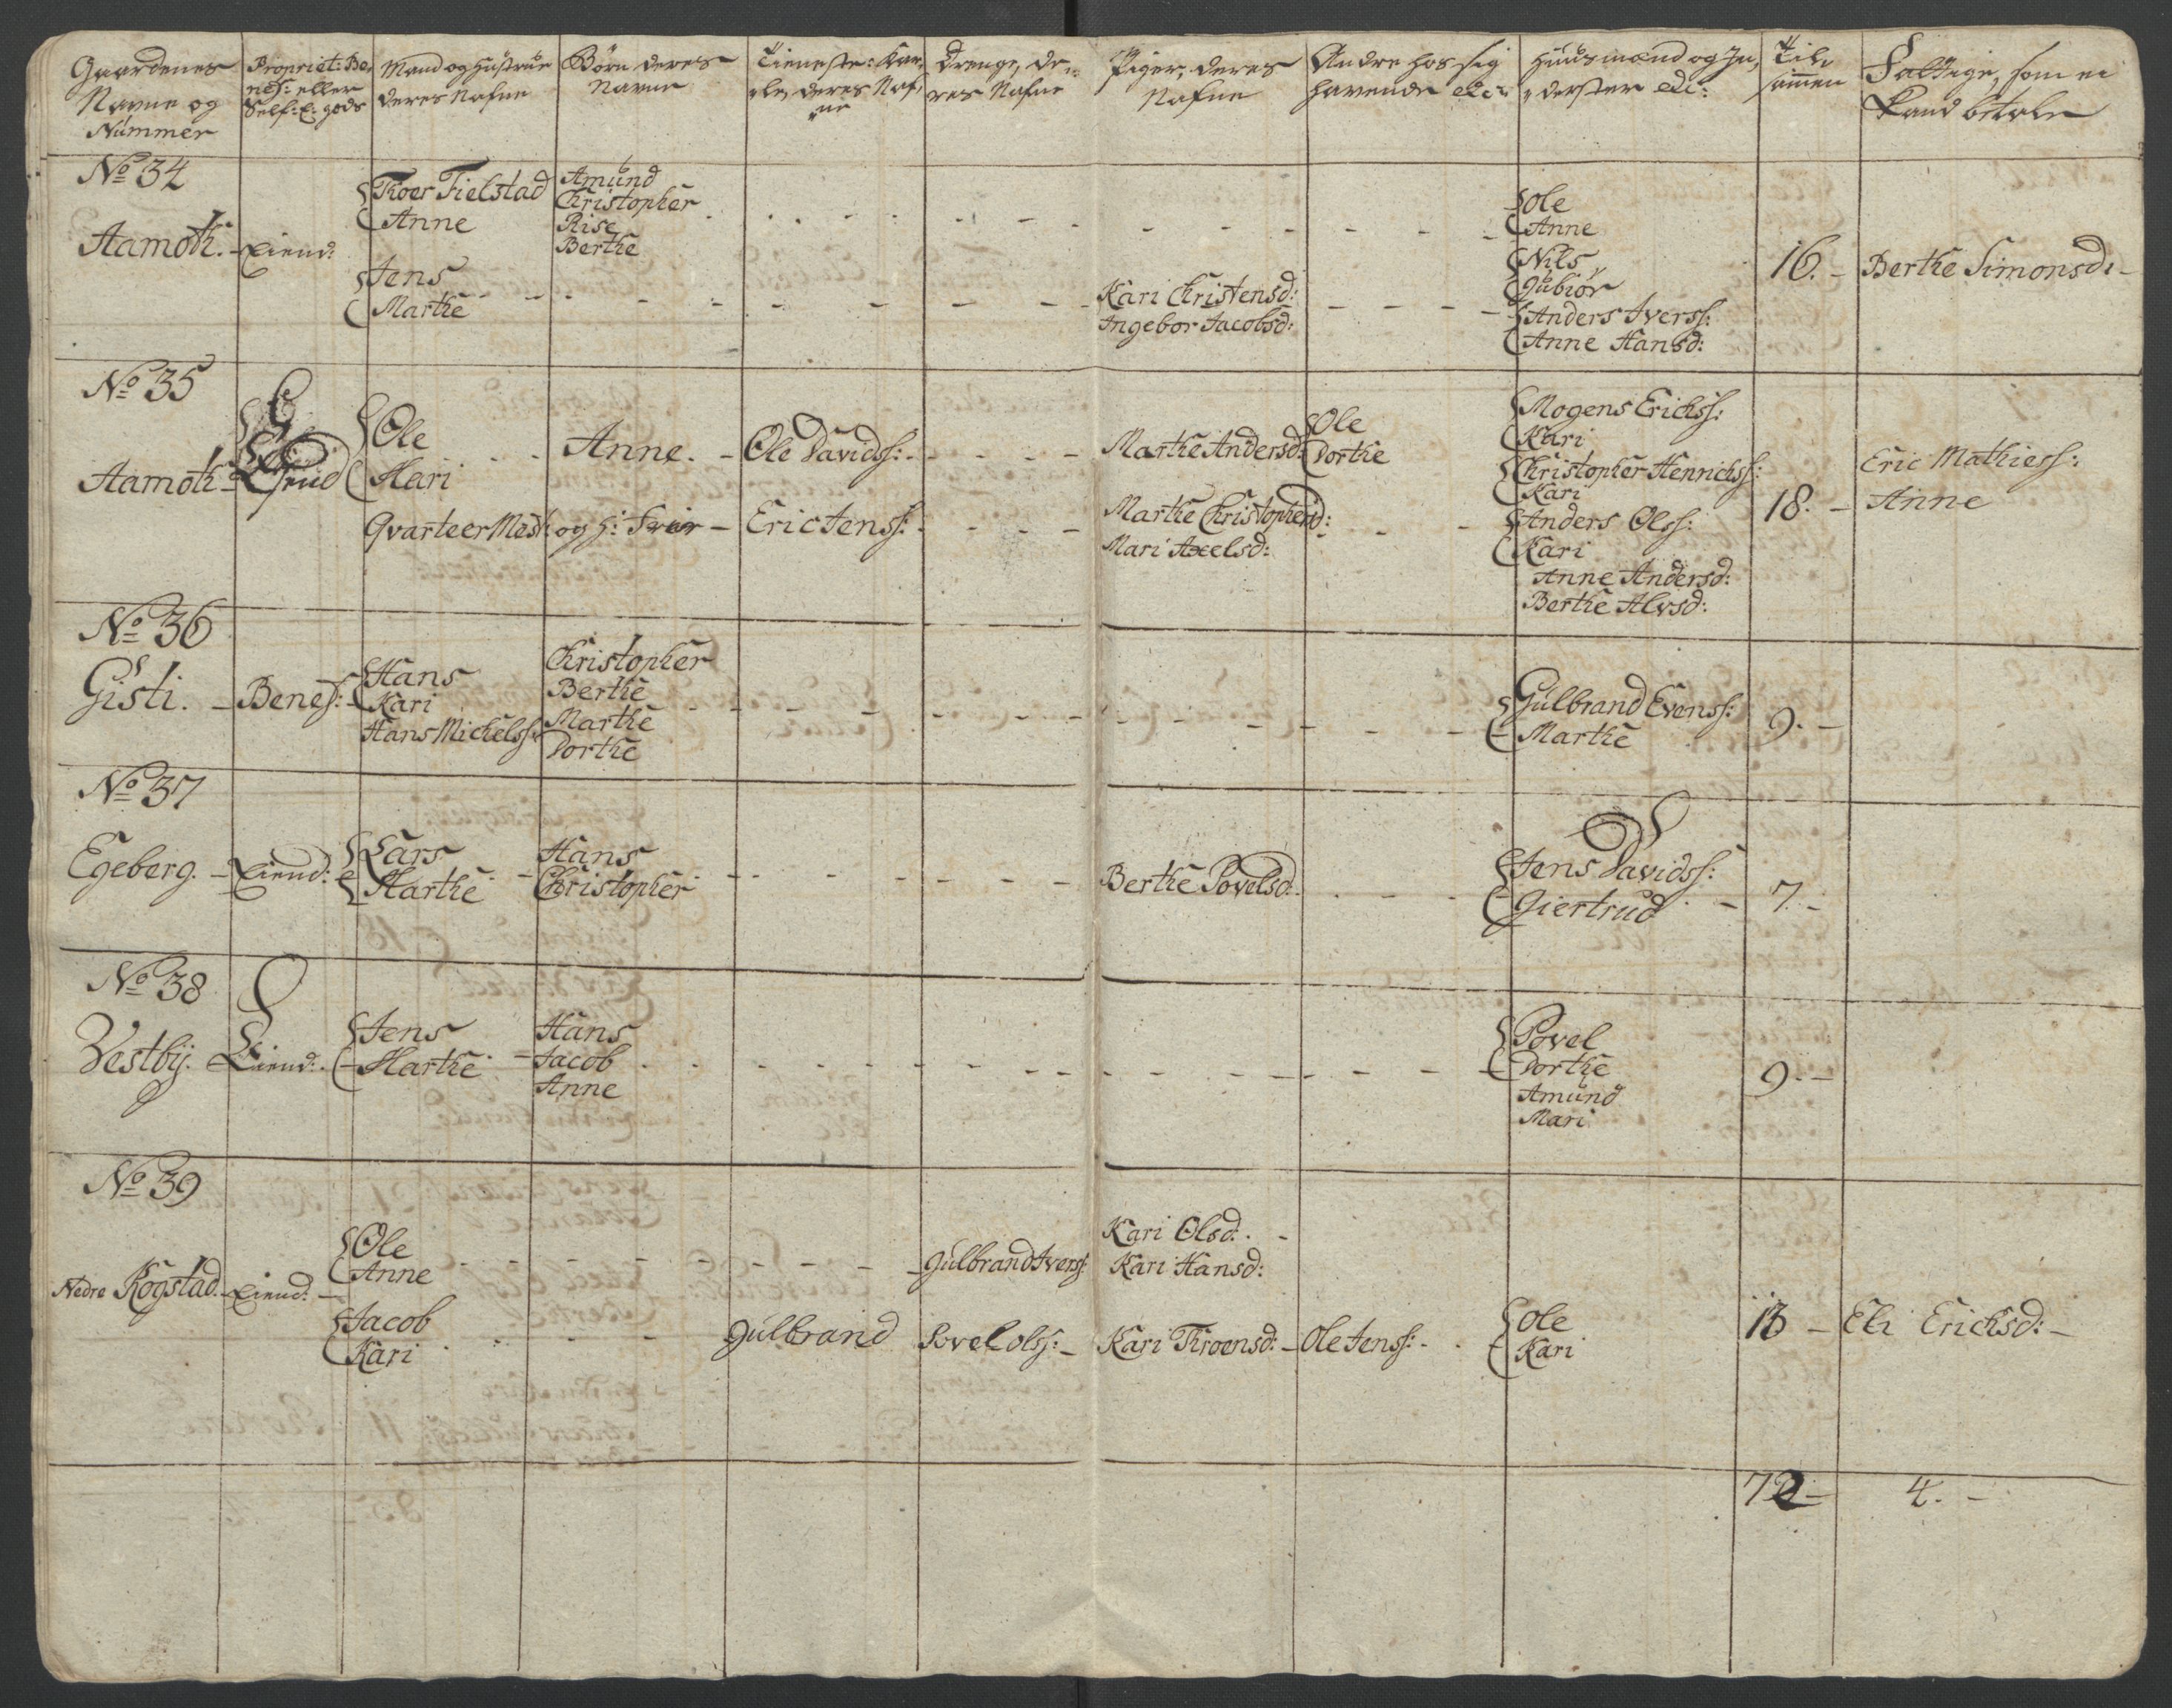 Gaardenes
Navne og
Nummer
Propriet: Be,
nef: eller
Self: E: gods
Mand og Hustrue
deres Nafne
Børn deres
Navne
Tieneste: Kar,
le, deres Naf,
ne
Drenge, de,
res Nafne
Piger, deres
Nafne
Andre hos sig
havende etc:
Huusmænd og In,
derster etc:
Til,
sam̄en
Fattige, som ei
kand betale
No 34
Aamoth. - Eiend:
Thoer Fielstad
Anne
Jens
Marthe
Amund
Christopher
Rise
Berthe
Kari Christensd:
Ingebor Jacobsd:
Ole
Anne
Nils
Gubiør
Anders Iverss:
Anne Hansd:
16. -
Berthe Simonsd: -
No 35
Aamoth -
Ole
Kari
Qvarteer Mest: og h: Frue -
Anne. -
Ole Davidss: -
Eric Jenss: -
Marthe Andersd:
Marthe Christophersd:
Mari Axelsd:
Ole
Dorthe
Mogens Erichss:
Kari
Christopher Henrichss:
Kari
Anders Olss:
Kari
Anne Andersd:
Berthe Alvsd:
18. -
Eric Mathiess:
Anne
No 36
Gisti. - Benef: -
Hans
Kari
Hans Michelss:
Christopher
Berthe
Marthe
Dorthe
Gulbrand Evenss:
Marthe
9. -
No 37
Egeberg. - Eiend:
Lars
Marthe
Hans
Christopher
Berthe Povelsd:
Jens Davidss:
Giertrud -
7. -
No 38
Vestbÿ. - Eiend: -
Jens
Marthe
Hans
Jacob
Anne
Povel
Dorthe
Amund
Mari
9. -
No 39
Nedre Kogstad - Eiend: -
Ole
Anne
Jacob
Kari
Gulbrand
Gulbrand Iverss:
Povel Olss: -
Kari Olsd: -
Kari Hansd:
Kari Throensd: -
Ole Jenss: -
Ole
Kari
13 -
Eli Erichsd: -
72 -
4. -